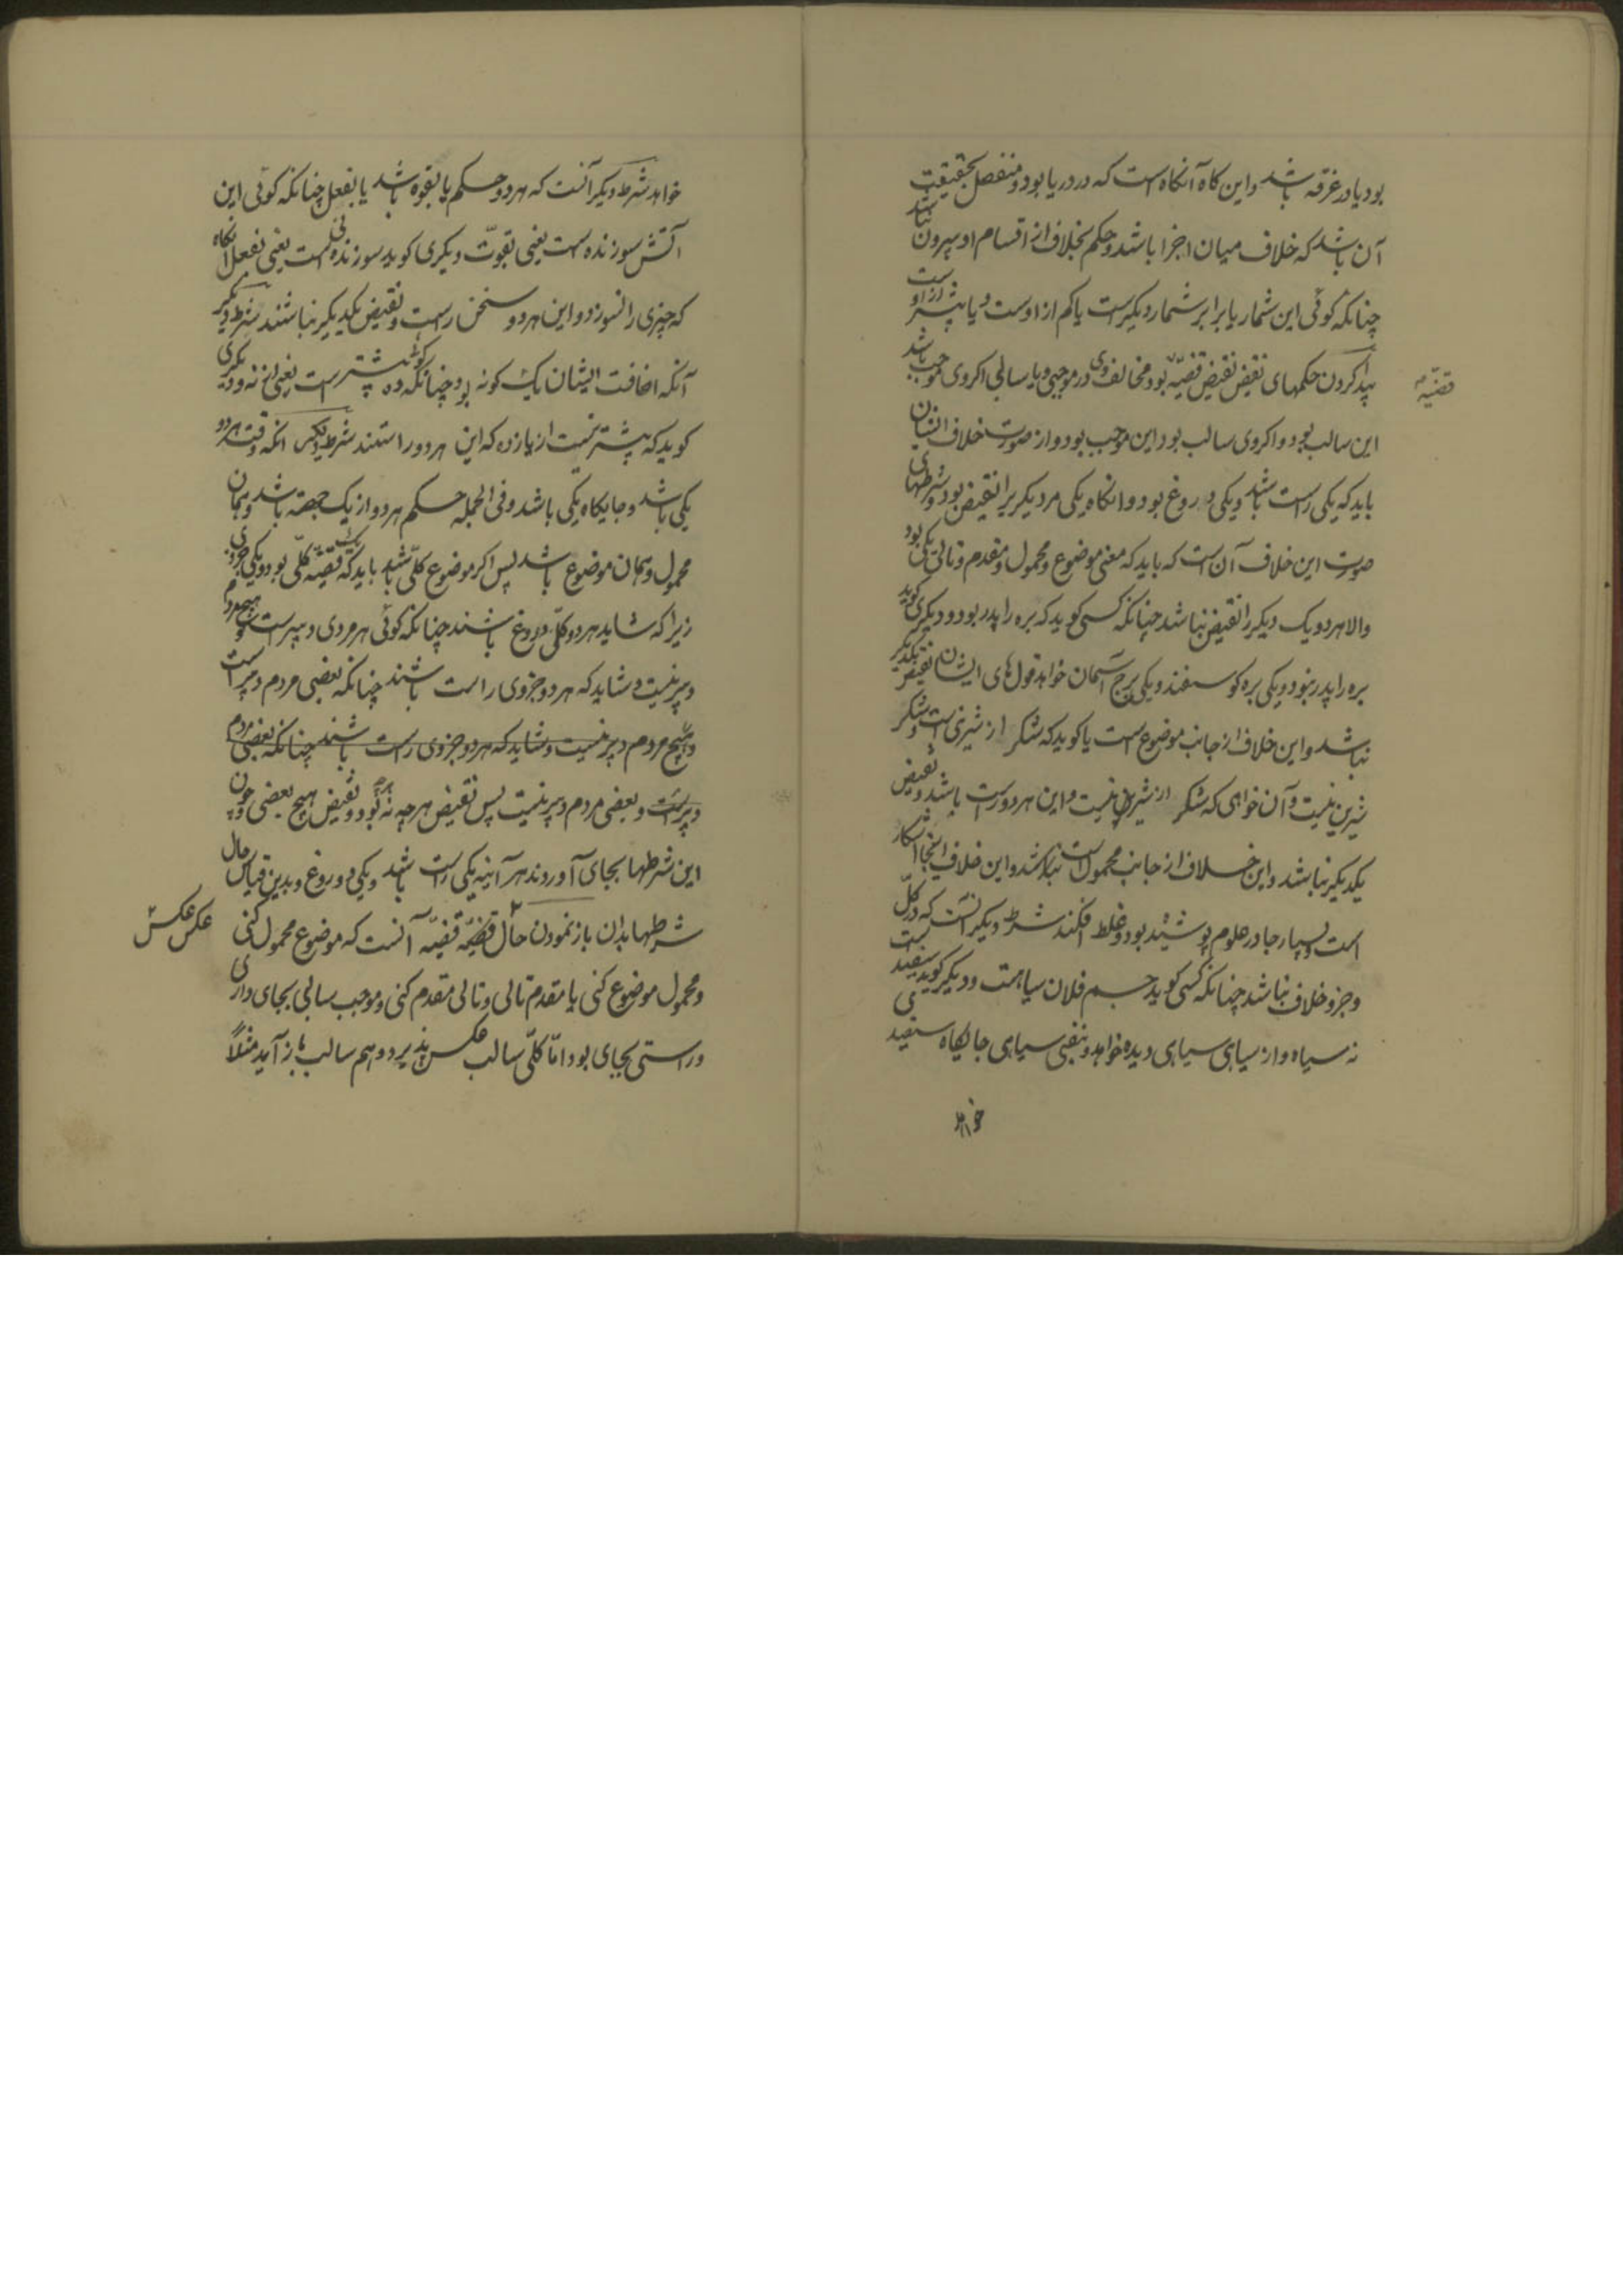 بود یا در غرقه باشد و این کاه آنکاه است که در دریا بود و منفصل بحقیقت
آن باشد که خلاف میان اجزا باشد و حکم بخلاف از اقسام او بیرون نباشد
چنانکه کوئی این شمار یا برابر شمار دیکرست یا کم از اوست و یا بیشتر از اوست
پیدا کردن حکمهای نقض نقیض قضیّه بود مخالف وی در موجبی و یا سالبی اکر وی موجب باشد
قضیّه
این سالب بود و اکر وی سالب بود این موجب بود و از صورت خلاف ایشان
باید که یکی راست باشد و یکی دروغ بود و انکاه یکی مر دیکر را نقیض بود و شرطهای
صورت این خلاف آن است که باید که معنی موضوع و محمول و مقدم و تالی یکی بود
والا هر دو یک دیکر را نقیض نباشد چنانکه کسی کوید که بره را پدر بود و دیکری کوید
بره را پدر نبود و یکی بره کوسفند و یکی برج آسمان خواهد قول های ایشان نقیض یکدیکر
نباشد و این خلاف از جانب موضوع است یا کوید که شکر از شیرنی است و شکر
شیرین نیست و آن خواهی که شکر از شیرین نیست و این هر دو راست باشد و نقیض
یکدیکر نباشد و این خلاف از جانب محمول است نباشد و این خلاف اینجا آشکار
است و بسیار جا در علوم پوشیده بود و غلط افکند شرط دیکر آنست که در کلّ
و جزو خلاف نباشد چنانکه کسی کوید جسم فلان سیاهست و دیکر کوید سفید است
نه سیاه و از سیاهی سیاهی دیده خواهد و بنفی سیاهی جایکاه سفیدی
خواهد
خواهد شرط دیکر آنست که هر دو حکم یا بقوه باشد یا بفعل چنانکه کوئی این
آتش سوزنده است یعنی بقوّت و دیکری کوید سوزنده نی است یعنی بفعل آنکاه
که چیزی را نسوزد و این هر دو سخن راست و نقیض یکدیکر نباشند شرط دیکر
آنکه اضافت ایشان یک کونه بود چنانکه کوئی ده بیشتر است یعنی از نه و دیکری
کوید که بیشتر نیست از یازده که این هر دو راستند شرط دیکر انکه وقت هر دو
یکی باشد و جایکاه یکی باشد و فی الجمله حکم هر دو از یک جهة باشد و همان
محمول و همان موضوع باشد پس اکر موضوع کلّی باشد باید که یک قضیّه کلّی بود و یکی جزوی
زیرا که شاید هر دو کلّی دروغ باشند چنانکه کوئی هر مردی دبیر است و هیچ مردم
دبیر نیست و شاید که هر دو جزوی راست باشند چنانکه بعضی مردم دبیر است
و هیچ مردم دبیر نیست و شاید که هر دو جزوی راست باشند چنانکه بعضی مردم
دبیر است و بعضی مردم دبیر نیست پس نقیض هر چه نه هر بود و نقیض هیچ بعضی و چون
این شرطها بجای آوردند هر آینه یکی راست باشد و یکی دروغ و بدین قیاس حال
شرطها بدان باز نمودن حال قضیّه قضیّه آنست که موضوع محمول کنی
عکس عکس
و محمول موضوع کنی یا مقدم تالی و تالی مقدم کنی و موجب سالبی بجای داری
و راستی بجای بود امّا کلّی سالب عکس پذیرد و هم سالب باز آید مثلاً